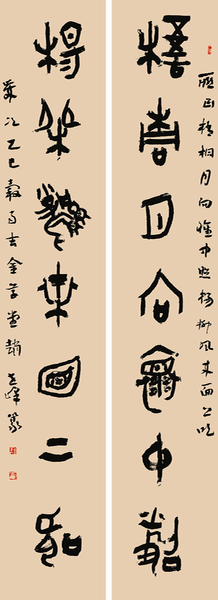 梧桐月向懷中照楊柳風來面上吹
梧桐月向懷中照
楊柳風來面上吹
歲次乙巳穀雨金草堂趙峰篆